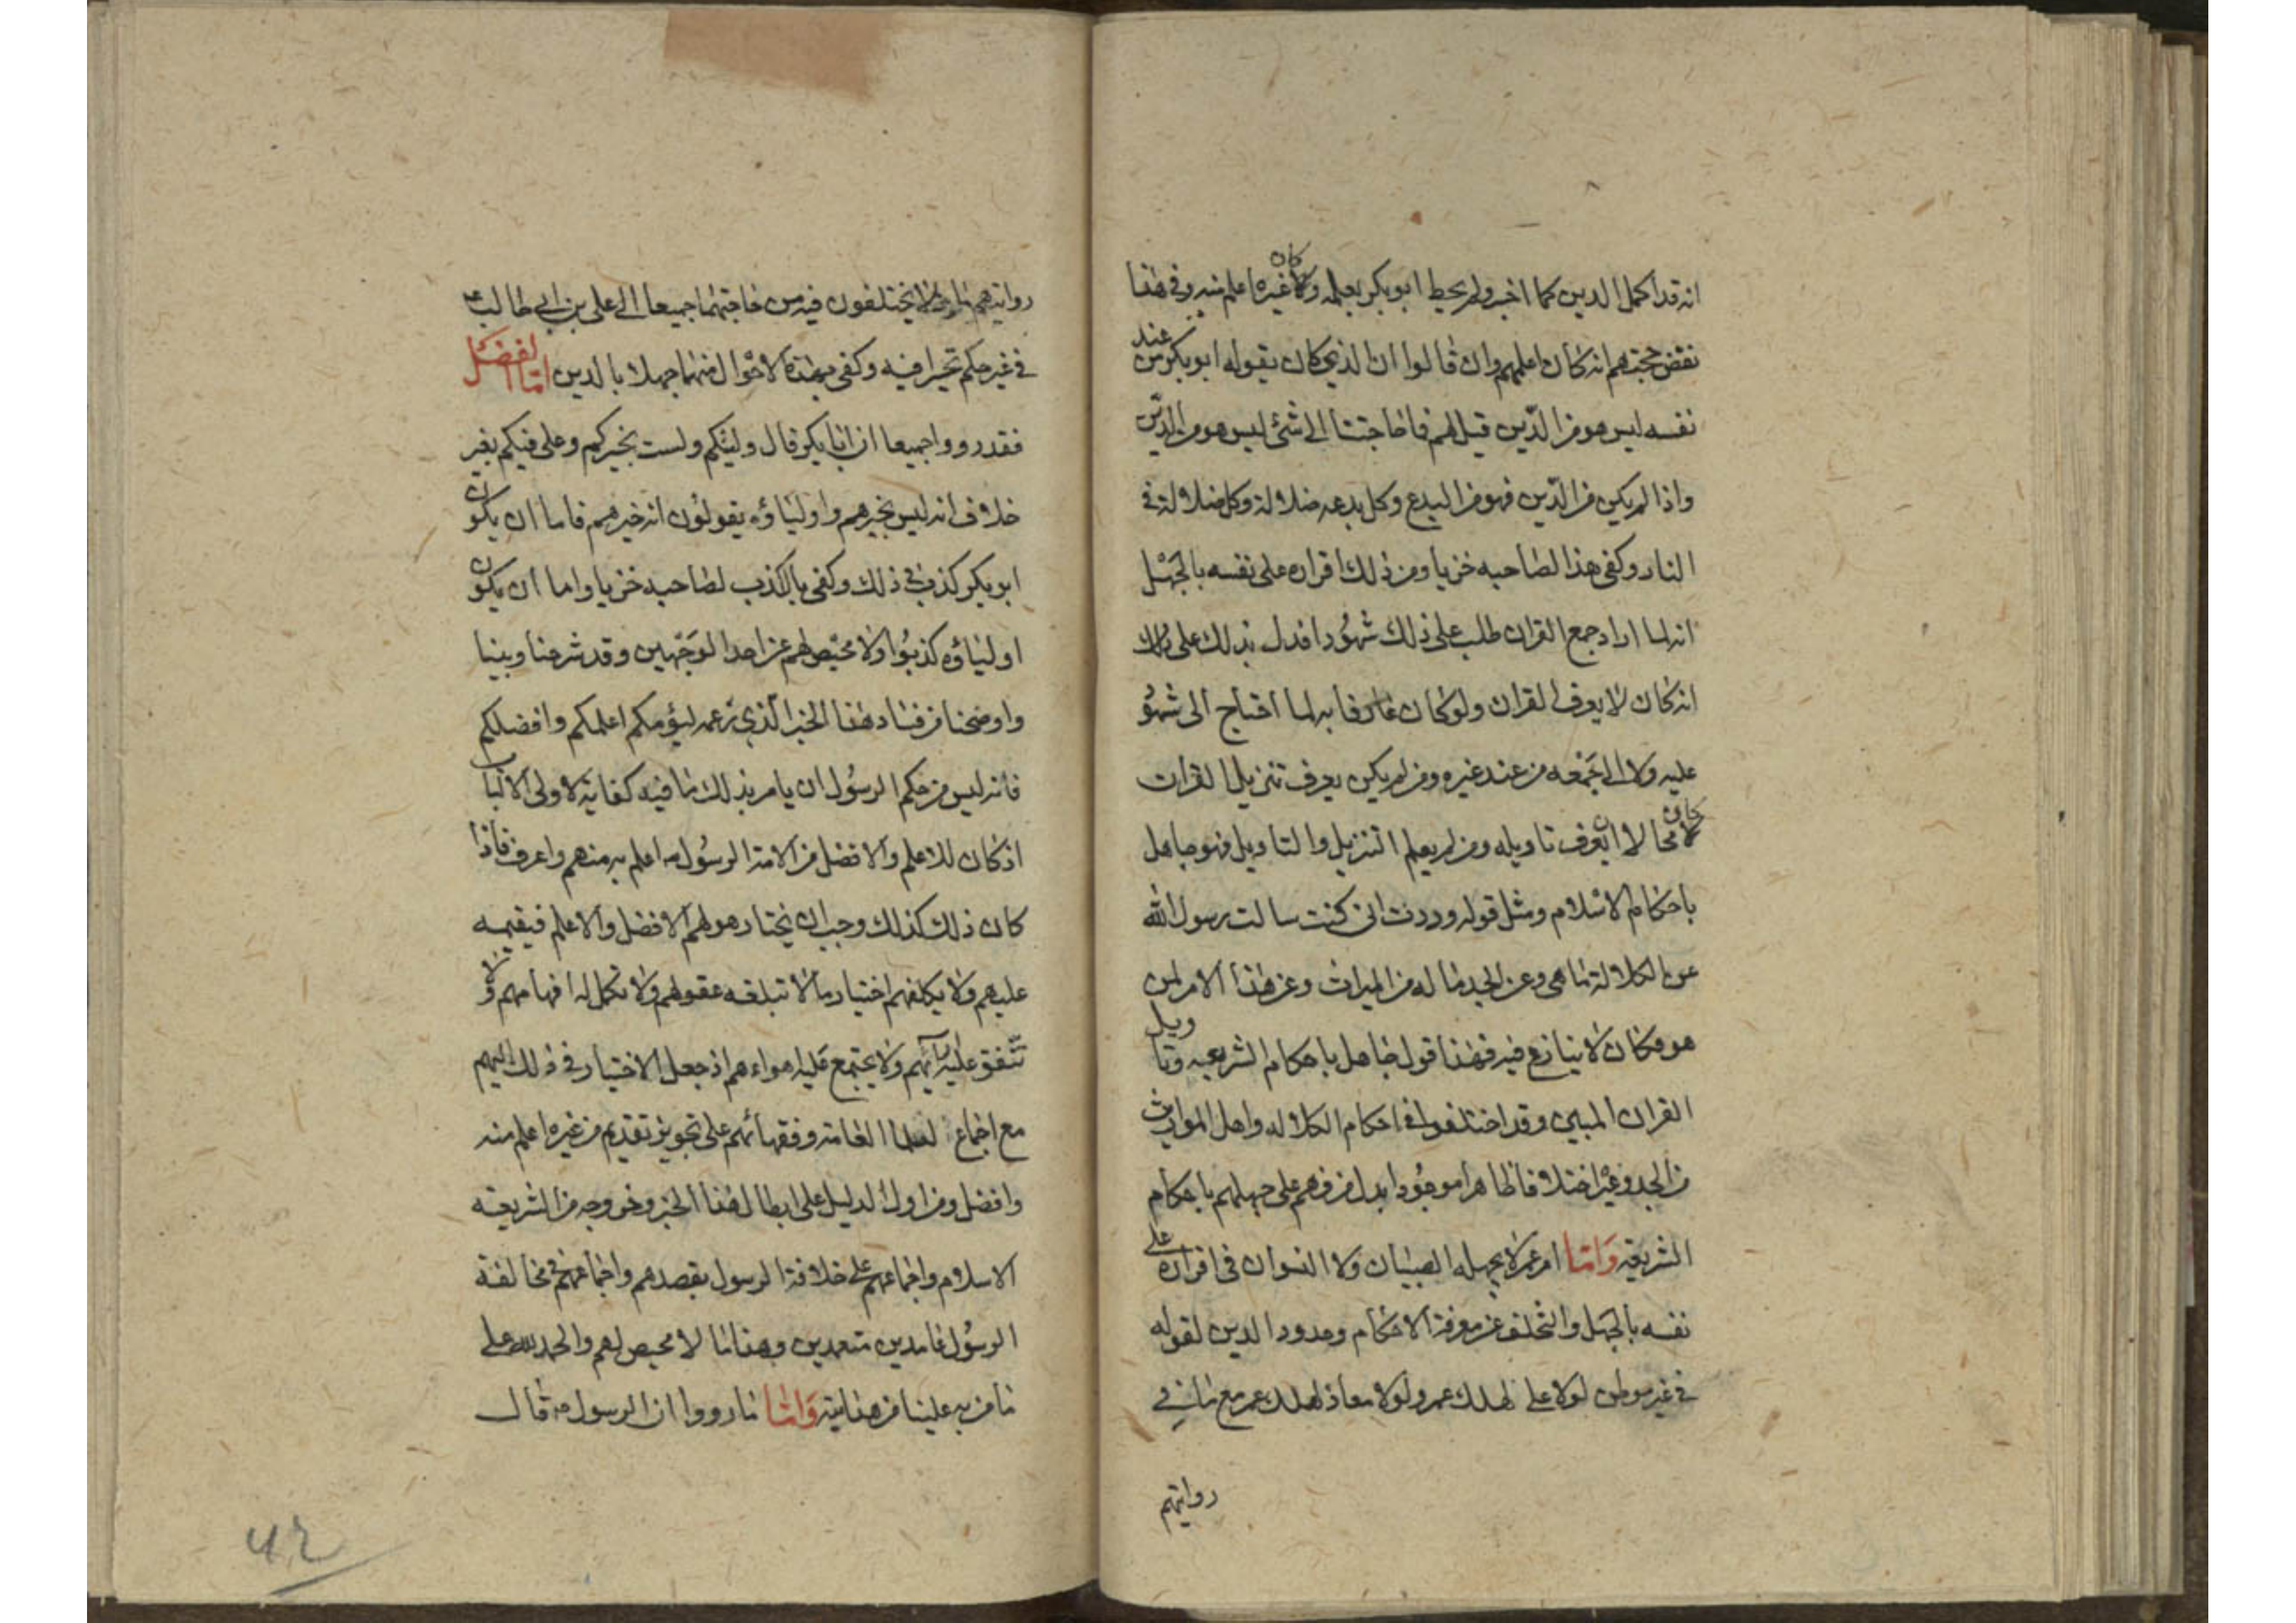 انه قد اكمل الدين كما اخبر ولم يحط ابو بكر بعلمه وكان غيره اعلم منه وفي هذا
نقض حجتهم انه كان اعلمهم وان قالوا ان الذي كان يقوله ابو بكر من عند
نفسه ليس هو من الدّين قيل لهم فما حاجتنا الى شئ ليس هو من الدّين
واذا لم يكن من الدّين فهو من البدع وكل بدعه ضلالة وكل ضلالة في
النار وكفى هذا لصاحبه خزيا ومن ذلك اقراره على نفسه بالجهل
انه لما اراد جمع القران طلب على ذلك شهودا فدل بذلك على
انه كان لا يعرف القران ولو كان عارفا به لما احتاج الى شهو
عليه ولا الى جمعه من عند غيره ومن لم يكن يعرف تنزيل القران
كان محالا ان يعرف تاويله ومن لم يعلم التنزيل والتاويل فهو جاهل
باحكام الاسلام ومثل قوله وددت انى كنت سالت رسول الله
عن الكلالة ما هى وعن الجد ما له من الميراث وعن هذا الامر لمن
هو فكان لا ينازع فيه فهذا قول جاهل باحكام الشريعه وتاويل
القران المبين وقد اختلفوا فى احكام الكلاله واهل المواريث
من الجد وغيره اختلافا ظاهرا موجودا يدل من فرهم على جهلهم باحكام
الشريعة وَامّا امر عمر لا يجهله الصبيان ولا النسوان فى اقراره على
نفسه بالجهل والتخلف عن معرفة الاحكام وحدود الدين لقوله
في غير موطن لولا على لهلك عمر ولولا معاذ لهلك عمر مع ما في
روايتهم
روايتهم مما لا يختلفون فيه من حاجتهما جميعا الى على بن ابي طالب ع
في غير حكم تحيرا فيه وكفى بهذه الاحوال منهما جهلا بالدين امّا الفضل
فقد رووا جميعا ان ابا بكر قال وليتكم ولست بخيركم وعلى فيكم بغير
خلاف انه ليس بخيرهم واولياؤه يقولون انه خيرهم فاما ان يكون
ابو بكر كذب في ذلك وكفى بالكذب لصاحبه خزيا واما ان يكون
اولياؤه كذبوا ولا محيص لهم عن احد الوجهين وقد شرحنا وبينا
واوضحنا من فساد هذا الخبر الّذي زعمه ليؤمكم اعلمكم وافضلكم
فانه ليس من حكم الرسول ان يامر بذلك ما فيه كفاية لاولى الالباب
اذ كان للاعلم والافضل من الامة الرسول ص اعلم به منهم واعرف فاذا
كان ذلك كذلك وجب ان يختار هو لهم الافضل والاعلم فيقيمه
عليهم ولا يكلفهم اختيار ما لا تبلغه عقولهم ولا تكمل له افهامهم ولا
تتفق عليه آرائهم ولا يجتمع عليه اهواءهم اذ جعل الاختيار في ذلك اليهم
مع اجماع العامة وفقهائهم على تجويز تقديم من غيره اعلم منه
وافضل ومن اول الدليل على ابطال هذا الخبر وخروجه من الشريعة
الاسلام واجماعهم على خلافة الرسول بقصدهم واجماعهم في مخالفة
الرسول عامدين متعمدين وهذا ما لا محيص لهم والحمد لله على
ما من به علينا من هدايته وَامّا ما رووا ان الرسول ص قال